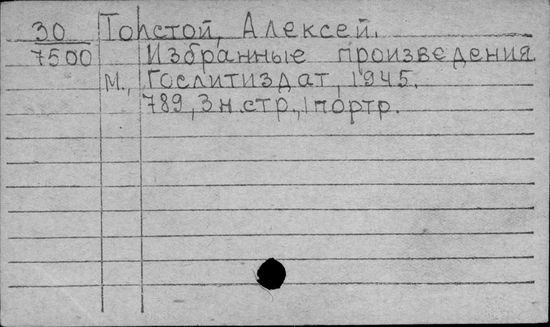 30 Толстой, Алексей.
7500 Избранные произведения.
М., Гослитиздат, 1945.
789, 3 н.стр., 1 портр.